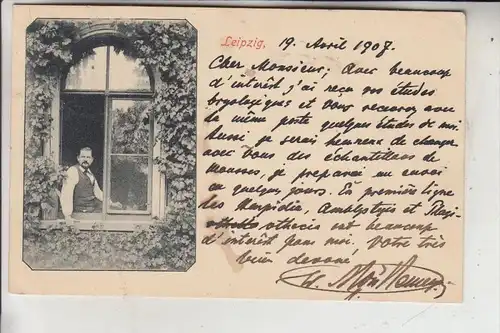 Leipzig, 19. Avril 1907.
Cher Monsieur; Avec beaucoup
d'intérêt j'ai reçu vos études
bryologiques et vous recevrez avec
la même poste quelques études de moi.
Aussi je serais heureux de changer
avec vous des échantillons de
mousses, je préparai un envoi
en quelques jours. En première ligne
des Harpidia, Amblystegia et Plagi-
othecies ont beaucoup
d'intérêt pour moi. Votre très
bien devoué,